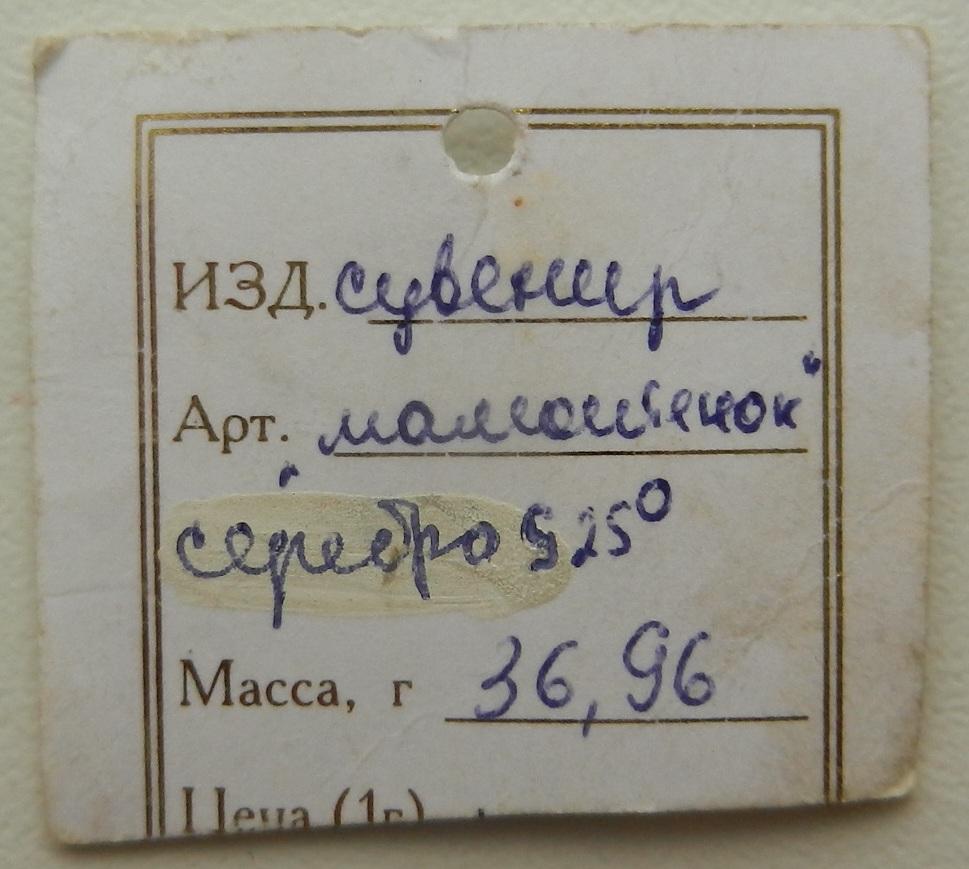 ИЗД. сувенир
Арт. "мамонтёнок"
серебро 925°
Масса, г 36,96
Цена (1г)